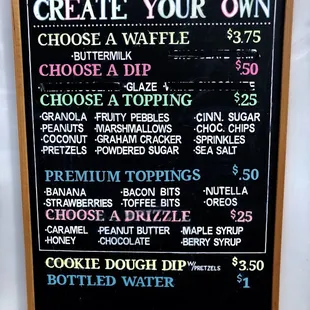 CREATE YOUR OWN
CHOOSE A WAFFLE $3.75
•BUTTERMILK
CHOOSE A DIP $.50
GLAZE
CHOOSE A TOPPING $.25
•GRANOLA •FRUITY PEBBLES •CINN. SUGAR
•PEANUTS •MARSHMALLOWS •CHOC. CHIPS
•COCONUT •GRAHAM CRACKER •SPRINKLES
•PRETZELS •POWDERED SUGAR •SEA SALT
PREMIUM TOPPINGS $.50
•BANANA •BACON BITS •NUTELLA
•STRAWBERRIES •TOFFEE BITS •OREOS
CHOOSE A DRIZZLE $.25
•CARAMEL •PEANUT BUTTER •MAPLE SYRUP
•HONEY •CHOCOLATE •BERRY SYRUP
COOKIE DOUGH DIP W/PRETZELS $3.50
BOTTLED WATER $1